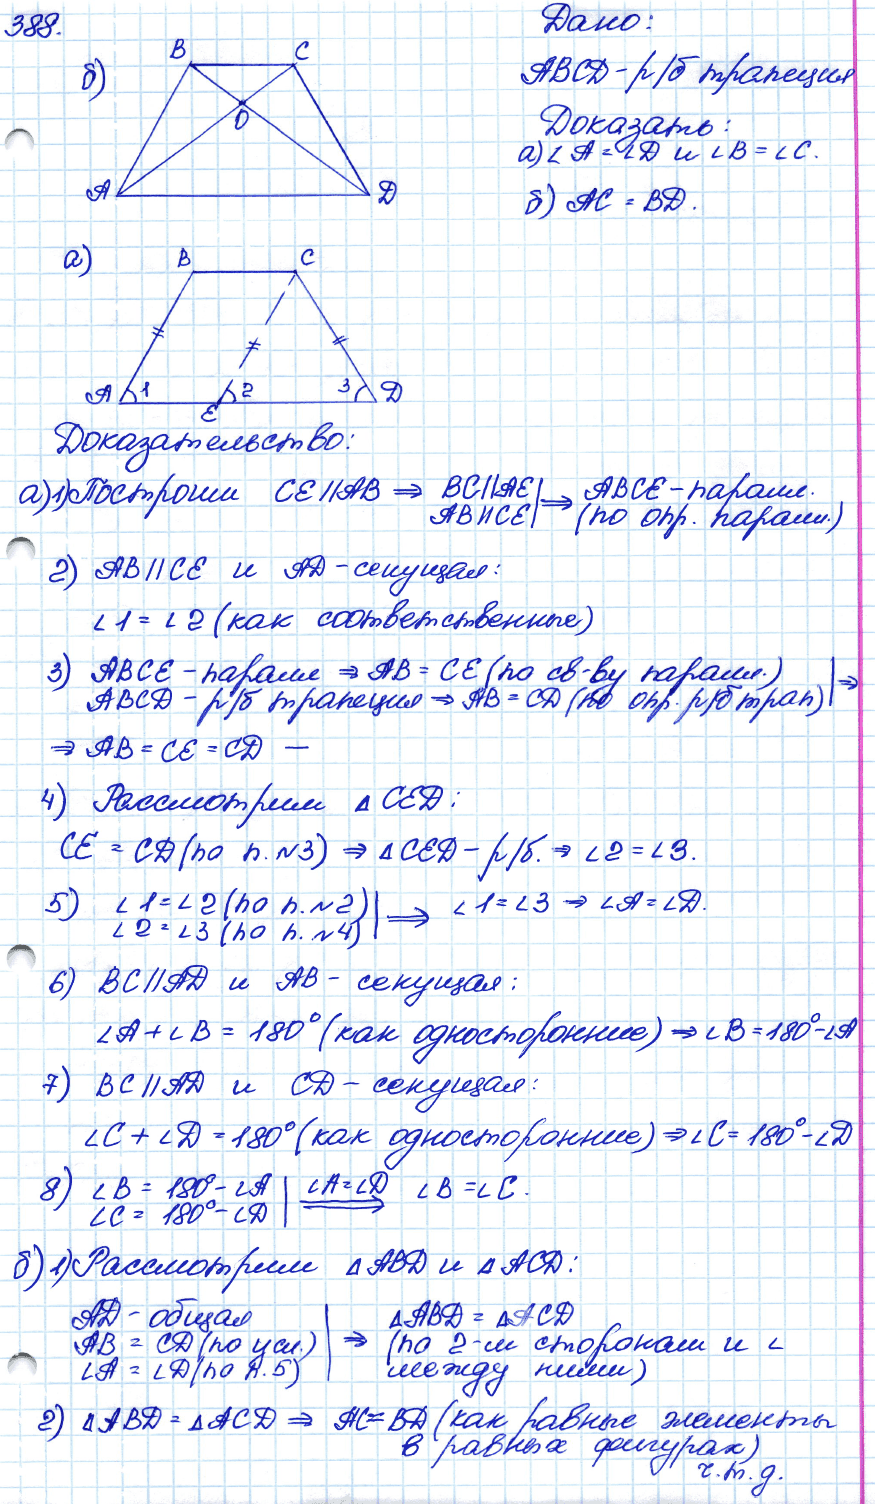 388.
Дано:
б)
B C
O
A D
ABCD - р/б трапеция
Доказать:
а) ∠A = ∠D и ∠B = ∠C.
б) AC = BD.
а)
B C
A 1 E 2 3 D
Доказательство:
а) 1) Построим CE || AB ⇒ BC || AE | ⇒ ABCE - паралл.
AB || CE | (по опр. паралл.)
2) AB || CE и AD - секущая:
∠1 = ∠2 (как соответственные)
3) ABCE - паралл ⇒ AB = CE (по св-ву паралл.) | ⇒
ABCD - р/б трапеция ⇒ AB = CD (по опр. р/б трап) |
⇒ AB = CE = CD —
4) Рассмотрим △CED:
CE = CD (по п. №3) ⇒ △CED - р/б. ⇒ ∠2 = ∠3.
5) ∠1 = ∠2 (по п. №2) | ⇒ ∠1 = ∠3 ⇒ ∠A = ∠D.
∠2 = ∠3 (по п. №4) |
6) BC || AD и AB - секущая:
∠A + ∠B = 180° (как односторонние) ⇒ ∠B = 180° - ∠A
7) BC || AD и CD - секущая:
∠C + ∠D = 180° (как односторонние) ⇒ ∠C = 180° - ∠D
8) ∠B = 180° - ∠A | ∠A = ∠D ⇒ ∠B = ∠C.
∠C = 180° - ∠D |
б) 1) Рассмотрим △ABD и △ACD:
AD - общая | △ABD = △ACD
AB = CD (по усл.) | ⇒ (по 2-м сторонам и ∠
∠A = ∠D (по п. 5) | между ними)
2) △ABD = △ACD ⇒ AC = BD (как равные элементы
в равных фигурах)
ч.т.д.